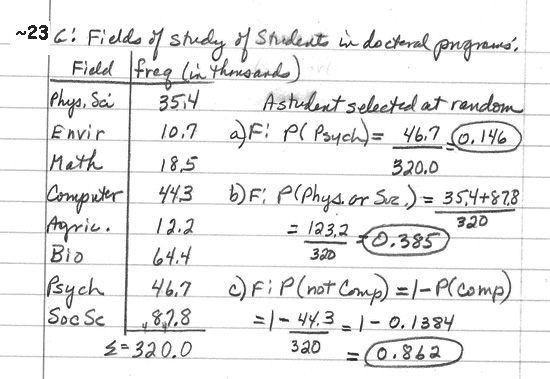 ~23 G: Fields of study of Students in doctoral programs.
Field freq (in thousands)
Phys. Sci 35.4 A student selected at random
Envir 10.7 a) F: P(Psych) = 46.7 / 320.0 = 0.146
Math 18.5
Computer 44.3 b) F: P(Phys. or Soc.) = 35.4+87.8 / 320
Agric. 12.2 = 123.2 / 320 = 0.385
Bio 64.4
Psych 46.7 c) F: P(not Comp) = 1-P(comp)
Soc Sc 87.8 = 1 - 44.3 / 320 = 1 - 0.1384
Σ = 320.0 = 0.862